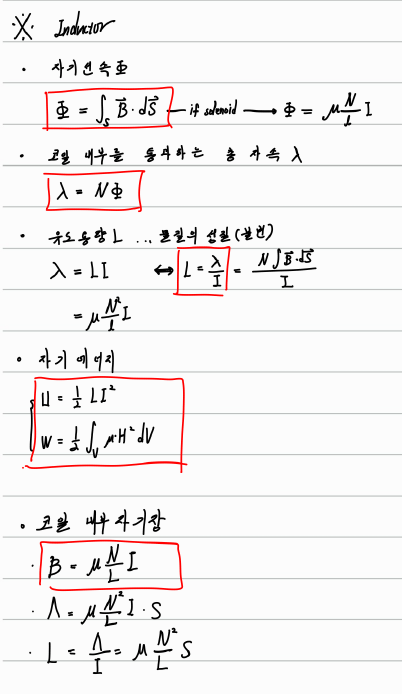 ※ Inductor
· 자기선속 Φ
Φ = ∫_S B⃗·dS⃗ — if solenoid ⟶ Φ = μ N/l I
· 코일 내부를 통과하는 총 자속 λ
λ = NΦ
· 유도용량 L ... 물질의 성질(불변)
λ = LI ⟷ L = λ/I = N∫B⃗·dS⃗/I
= μ N²/l I
· 자기 에너지
U = 1/2 LI²
W = 1/2 ∫_V μ·H² dV
· 코일 내부 자기장
· B = μ N/L I
· Λ = μ N²/L I · S
· L = Λ/I = μ N²/L S